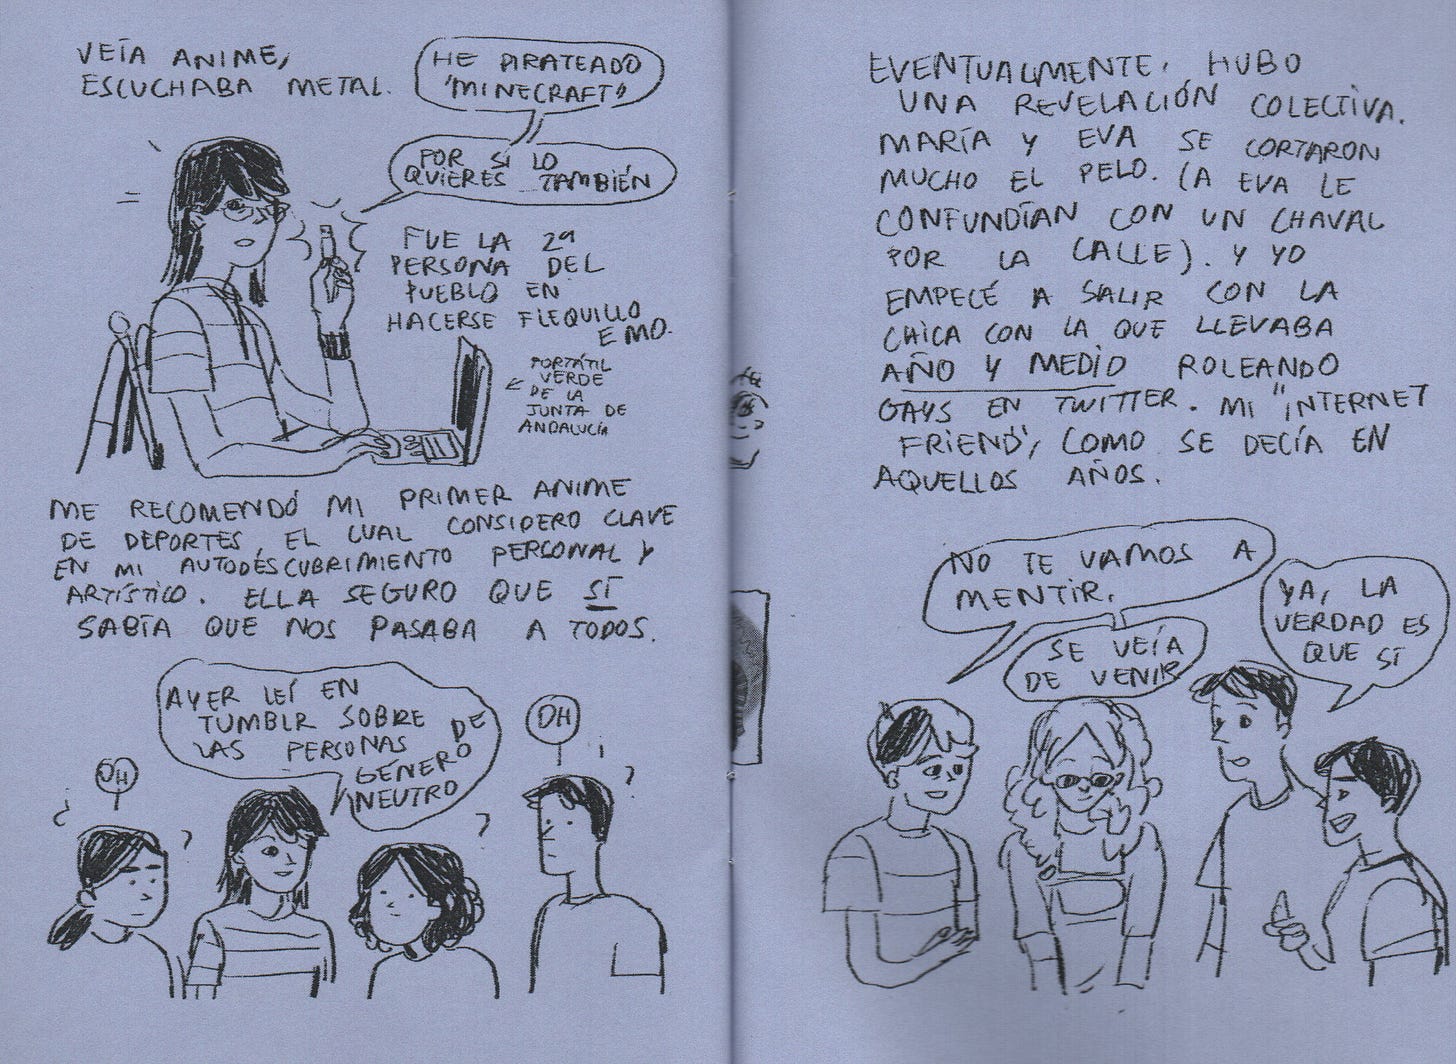 VEÍA ANIME,
ESCUCHABA METAL.
HE PIRATEADO
"MINECRAFT"
POR SI LO
QUIERES TAMBIÉN
FUE LA 2ª
PERSONA DEL
PUEBLO EN
HACERSE FLEQUILLO
EMO.
PORTÁTIL
VERDE
DE LA
JUNTA DE
ANDALUCÍA
ME RECOMENDÓ MI PRIMER ANIME
DE DEPORTES, EL CUAL CONSIDERO CLAVE
EN MI AUTODESCUBRIMIENTO PERSONAL Y
ARTÍSTICO. ELLA SEGURO QUE SÍ
SABÍA QUE NOS PASABA A TODOS.
AYER LEÍ EN
TUMBLR SOBRE
LAS PERSONAS DE
GÉNERO
NEUTRO
OH
OH
EVENTUALMENTE, HUBO
UNA REVELACIÓN COLECTIVA.
MARÍA Y EVA SE CORTARON
MUCHO EL PELO. (A EVA LE
CONFUNDÍAN CON UN CHAVAL
POR LA CALLE). Y YO
EMPECÉ A SALIR CON LA
CHICA CON LA QUE LLEVABA
AÑO Y MEDIO ROLEANDO
GAYS EN TWITTER. MI "INTERNET
FRIEND", COMO SE DECÍA EN
AQUELLOS AÑOS.
NO TE VAMOS A
MENTIR.
SE VEÍA
DE VENIR
YA, LA
VERDAD ES
QUE SÍ